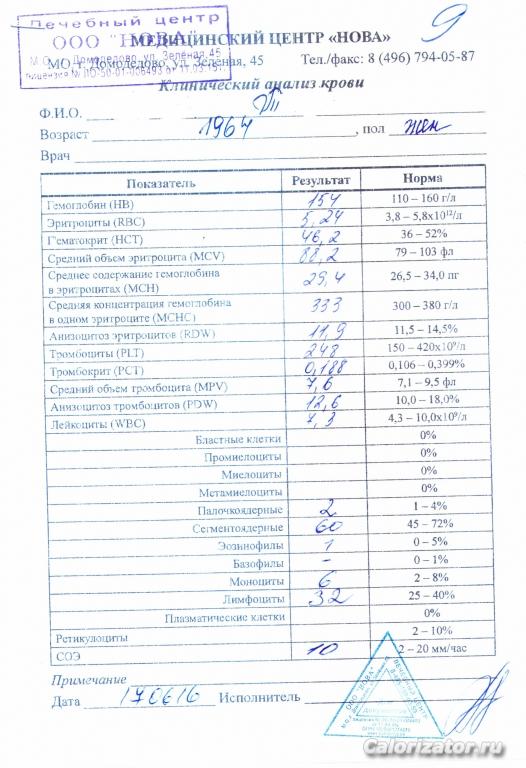 Лечебный центр
ООО "НОВА"
М.О., г. Домодедово, ул. Зелёная, 45
лицензия № ЛО-50-01-006493 от 17.03.15г.
9
МЕДИЦИНСКИЙ ЦЕНТР «НОВА»
МО г. Домодедово, ул. Зеленая, 45 Тел./факс: 8 (496) 794-05-87
Клинический анализ крови
Ф.И.О.
Возраст 1964, пол жен
Врач
Показатель Результат Норма
Гемоглобин (HB) 154 110 – 160 г/л
Эритроциты (RBC) 5,24 3,8 – 5,8x10¹²/л
Гематокрит (HCT) 46,2 36 – 52%
Средний объем эритроцита (MCV) 88,2 79 – 103 фл
Среднее содержание гемоглобина
в эритроцитах (MCH) 29,4 26,5 – 34,0 пг
Средняя концентрация гемоглобина
в одном эритроците (MCHC) 333 300 – 380 г/л
Анизоцитоз эритроцитов (RDW) 11,9 11,5 – 14,5%
Тромбоциты (PLT) 248 150 – 420x10⁹/л
Тромбокрит (PCT) 0,188 0,106 – 0,399%
Средний объем тромбоцита (MPV) 7,6 7,1 – 9,5 фл
Анизоцитоз тромбоцитов (PDW) 12,6 10,0 – 18,0%
Лейкоциты (WBC) 7,3 4,3 – 10,0x10⁹/л
Бластные клетки 0%
Промиелоциты 0%
Миелоциты 0%
Метамиелоциты 0%
Палочкоядерные 2 1 – 4%
Сегментоядерные 60 45 – 72%
Эозинофилы 1 0 – 5%
Базофилы – 0 – 1%
Моноциты 6 2 – 8%
Лимфоциты 32 25 – 40%
Плазматические клетки 0%
Ретикулоциты 2 – 10%
СОЭ 10 2 – 20 мм/час
Примечание
Дата 170616 Исполнитель
ООО "НОВА"
ЛЕЧЕБНЫЙ ЦЕНТР
Calorizator.ru